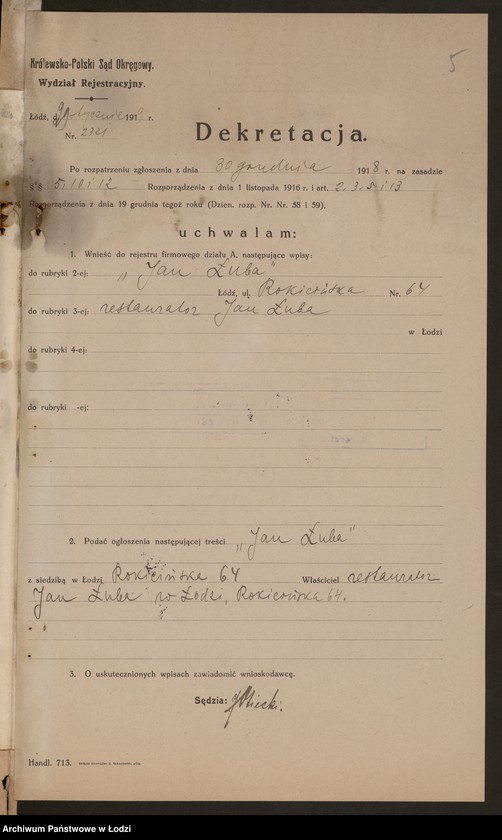 5
Królewsko-Polski Sąd Okręgowy.
Wydział Rejestracyjny.
Łódź, d. stycznia 1919 r.
Nr. 2721
Dekretacja.
Po rozpatrzeniu zgłoszenia z dnia 30 grudnia 1918 r. na zasadzie
§§ 5, 10 i 12 Rozporządzenia z dnia 1 listopada 1916 r. i art. 2, 3, 5 i 13
Rozporządzenia z dnia 19 grudnia tegoż roku (Dzien. rozp. Nr. Nr. 58 i 59),
uchwalam:
1. Wnieść do rejestru firmowego działu A. następujące wpisy:
do rubryki 2-ej: „Jan Łuba"
Łódź, ul. Rokicińska Nr. 64
do rubryki 3-ej: restaurator Jan Łuba
w Łodzi
do rubryki 4-ej:
do rubryki -ej:
2. Podać ogłoszenia następującej treści „Jan Łuba"
z siedzibą w Łodzi, Rokicińska 64 Właściciel restaurator
Jan Łuba w Łodzi, Rokicińska 64.
3. O uskutecznionych wpisach zawiadomić wnioskodawcę.
Sędzia:
Handl. 713.
Archiwum Państwowe w Łodzi